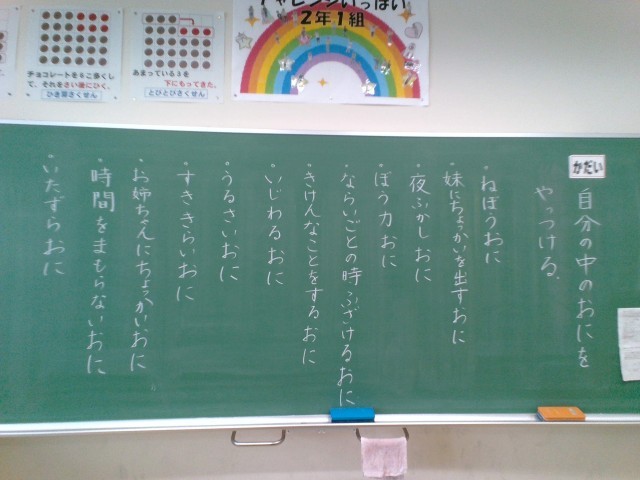 チャレンジいっぱい
2年1組
チョコレートを6こ多くし
て、それをさい後にひく。
ひき算さくせん
あまっている3を
下にもってきた。
とびとびさくせん
かだい
自分の中のおにを
やっつける。
・ねぼうおに
・妹にちょっかいを出すおに
・夜ふかしおに
・ぼう力おに
・ならいごとの時ふざけるおに
・きけんなことをするおに
・いじわるおに
・うるさいおに
・すききらいおに
・お姉ちゃんにちょっかいおに
・時間をまもらないおに
・いたずらおに